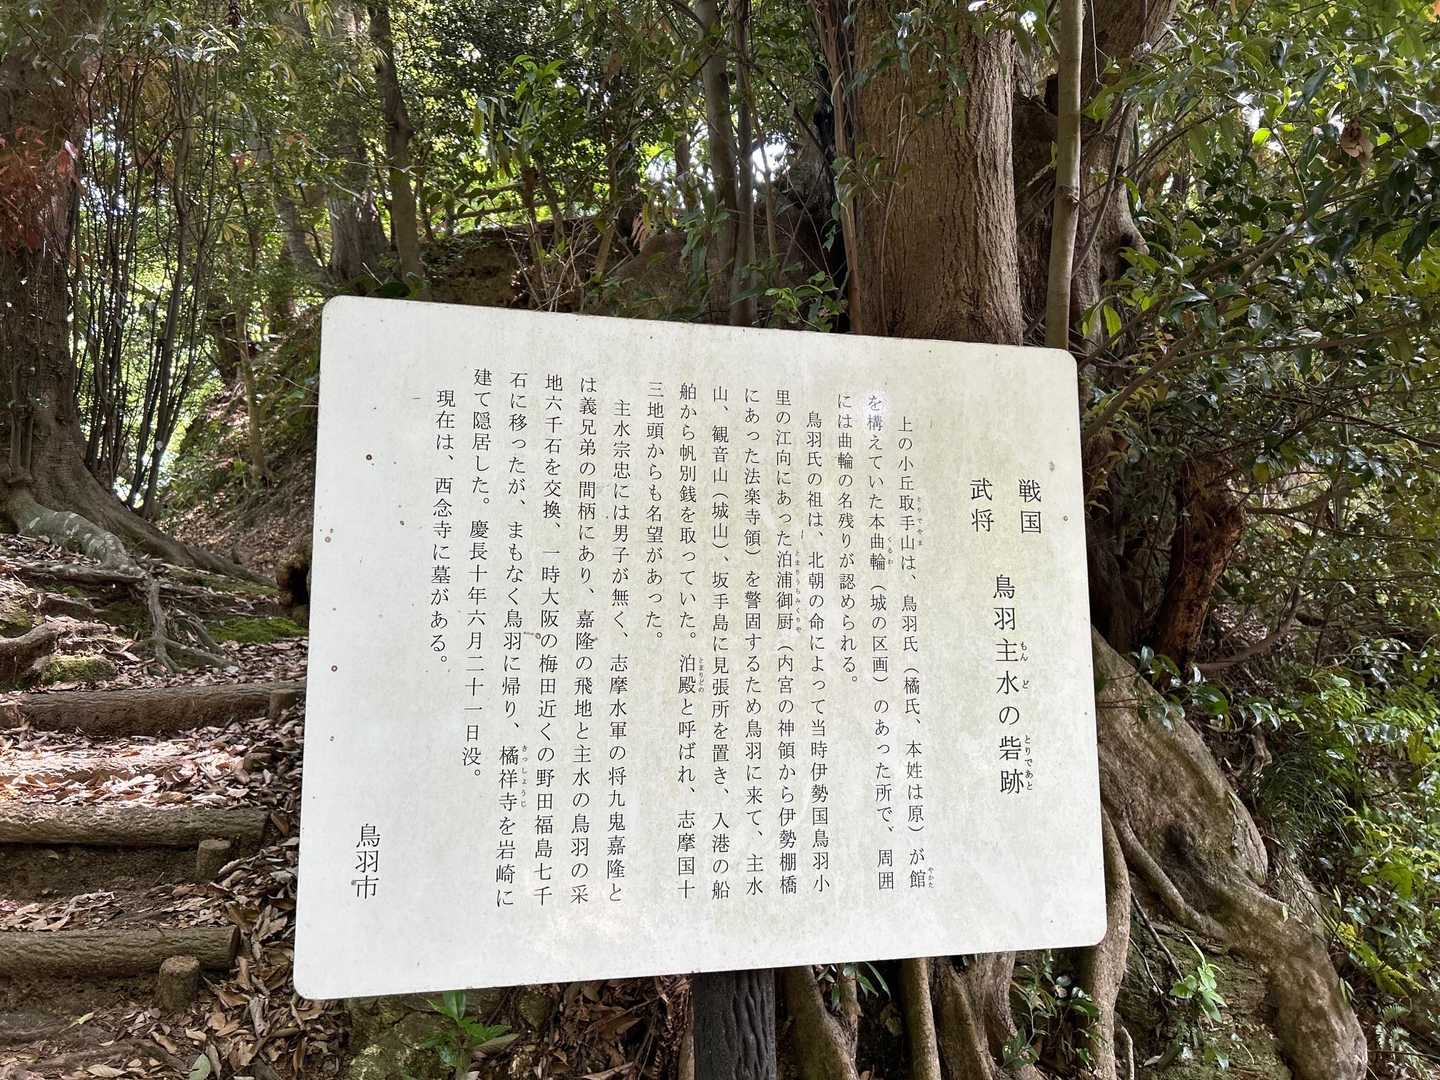 戦国武将
鳥羽主水の砦跡
もんど
とりであと
上の小丘取手山は、鳥羽氏（橘氏、本姓は原）が館
とりでやま
やかた
を構えていた本曲輪（城の区画）のあった所で、周囲
くるわ
には曲輪の名残りが認められる。
鳥羽氏の祖は、北朝の命によって当時伊勢国鳥羽小
里の江向にあった泊浦御厨（内宮の神領から伊勢棚橋
とまりうらみくりや
にあった法楽寺領）を警固するため鳥羽に来て、主水
山、観音山（城山）、坂手島に見張所を置き、入港の船
舶から帆別銭を取っていた。泊殿と呼ばれ、志摩国十
とまりどの
三地頭からも名望があった。
主水宗忠には男子が無く、志摩水軍の将九鬼嘉隆と
は義兄弟の間柄にあり、嘉隆の飛地と主水の鳥羽の采
地六千石を交換、一時大阪の梅田近くの野田福島七千
石に移ったが、まもなく鳥羽に帰り、橘祥寺を岩崎に
きっしょうじ
建て隠居した。慶長十年六月二十一日没。
現在は、西念寺に墓がある。
鳥羽市